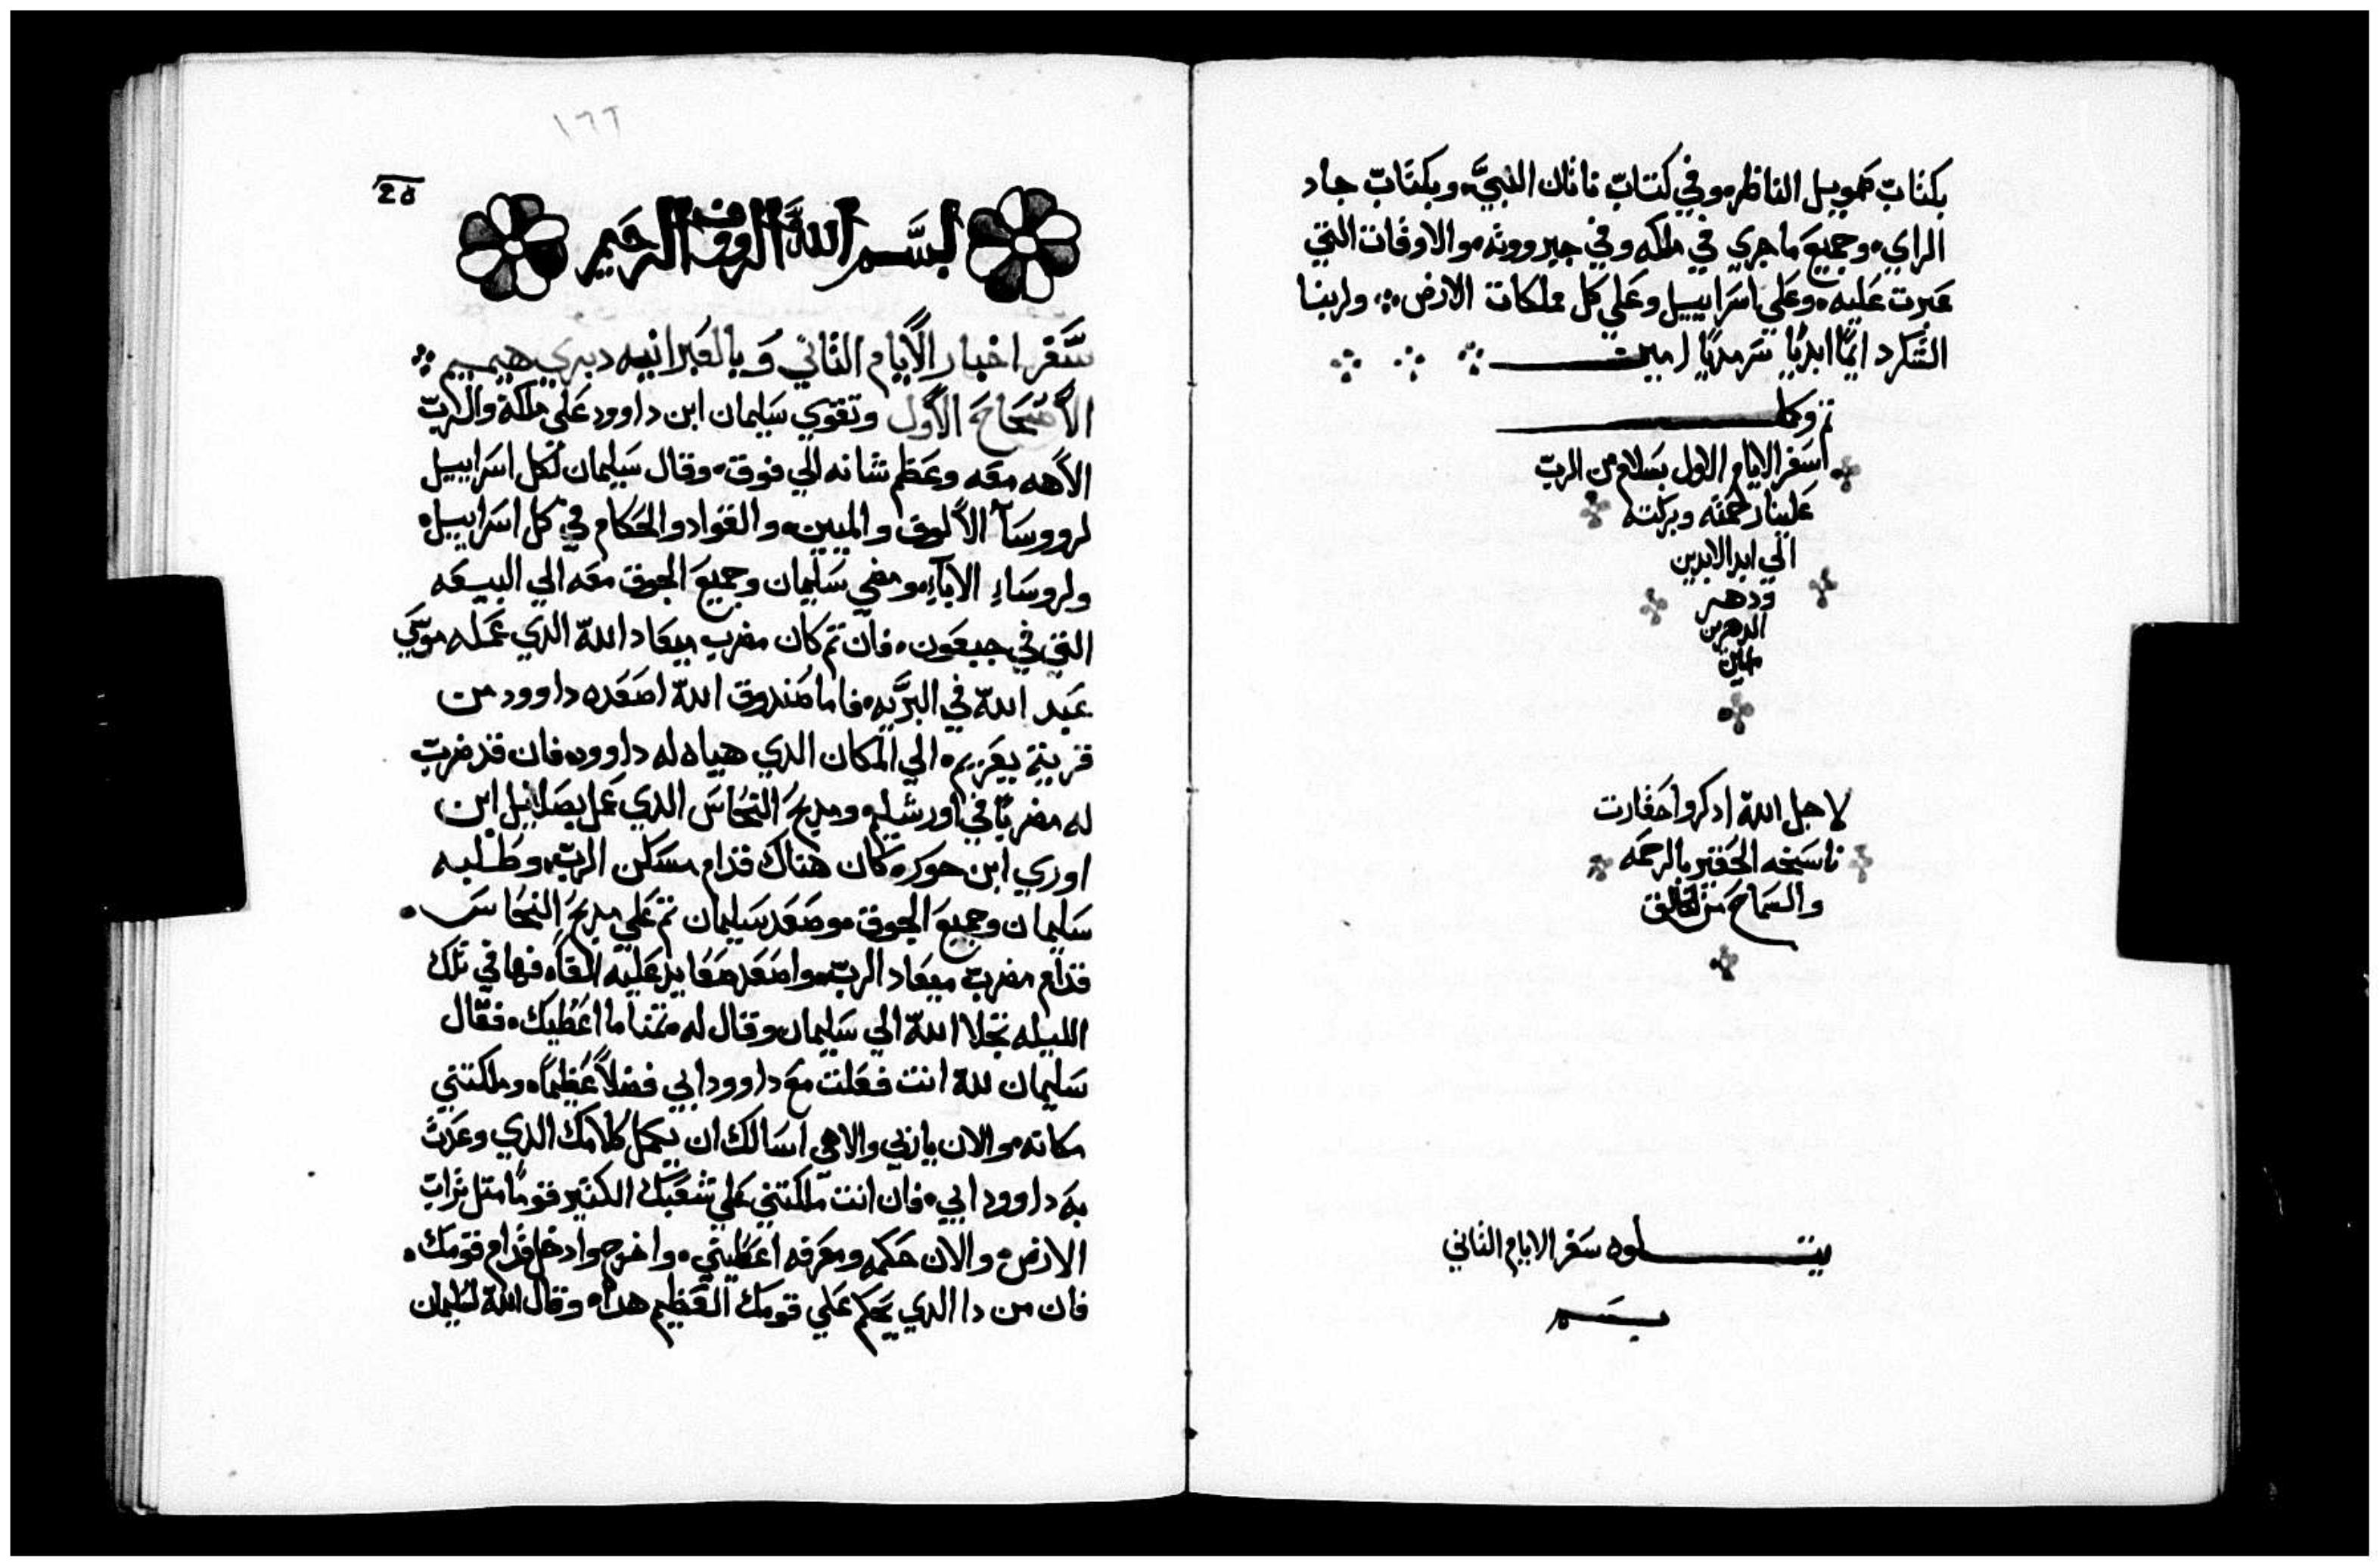 بكتاب صمويل الناظر، وفي كتاب ناثان النبي، وبكتاب جاد
الراي، وجميع ما جري في ملكه وفي جبرووته، والاوقات التي
عبرت عليه، وعلي اسراييل وعلي كل مملكات الارض، ولربنا
الشكر دايمًا ابديًا سرمديًا امين
تم وكمل
سفر الايام الاول بسلام من الرب
علينا رحمته وبركته
الي ابد الابدين
ودهر
الدهرين
امين
لاجل الله ادكروا حقارت
ناسخه الحقير بالرحمه
والسماح من الخالق
يتلوه سفر الايام الثاني
بسم
١٦٦
بسم الله الرووف الرحيم
سفر اخبار الأيام الثاني وبالعبرانيه دبري هيميم
الأصحاح الأول وتقوي سليمان ابن داوود علي ملكه والرب
الاهه معه وعظم شانه الي فوق، وقال سليمان لكل اسراييل
لرووسآ الألوف والميين، والقواد والحكام في كل اسراييل،
ولروساء الابآء، ومضي سليمان وجميع الجوق معه الي البيعه
التي في جبعون، فان تم كان مضرب ميعاد الله الدي عمله موسي
عبد الله في البريه، فاما صندوق الله اصعده داوود من
قرية يعريم، الي المكان الدي هياه له داوود، فان قد ضرب
له مضربًا في اورشليم، ومدبح النحاس الدي عمل بصلاييل ابن
اوري ابن حور، كان هناك قدام مسكن الرب، وطلبه
سليمان وجميع الجوق، وصعد سليمان تم علي مدبح النحاس،
قدام مضرب ميعاد الرب، واصعد صعايد عليه الفًا، فها في تلك
الليله تجلا الله الي سليمان وقال له، تمنا ما اعطيك، فقال
سليمان لله انت فعلت مع داوود ابي فضلاً عظيمًا، وملكتني
مكانه، والان ياربي والاهي اسالك ان يكمل كلامك الدي وعدت
به داوود ابي، فان انت ملكتني علي شعبك الكتير قومًا متل تراب
الارض، والان حكمه ومعرفه اعطيني، واخرج وادخل قدام قومك،
فان من دا الدي يحكم علي قومك العظيم هدا، وقال الله لسليمان